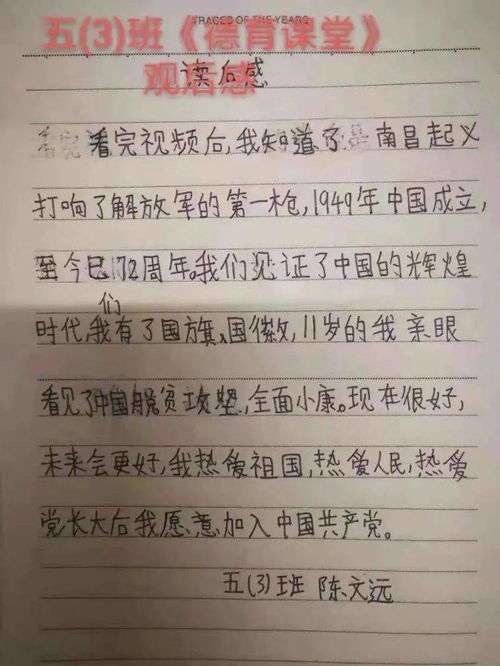 TRACES OF THE YEARS
五(3)班《德育课堂》
观后感
读后感
看完视频后,我知道了 南昌起义
打响了解放军的第一枪,1949年中国成立,
至今已72周年。我们见证了中国的辉煌
们
时代,我有了国旗、国徽,11岁的我亲眼
看见了中国脱贫攻坚,全面小康。现在很好,
未来会更好,我热爱祖国,热爱人民,热爱
党长大后我愿意加入中国共产党。
五(3)班 陈文远